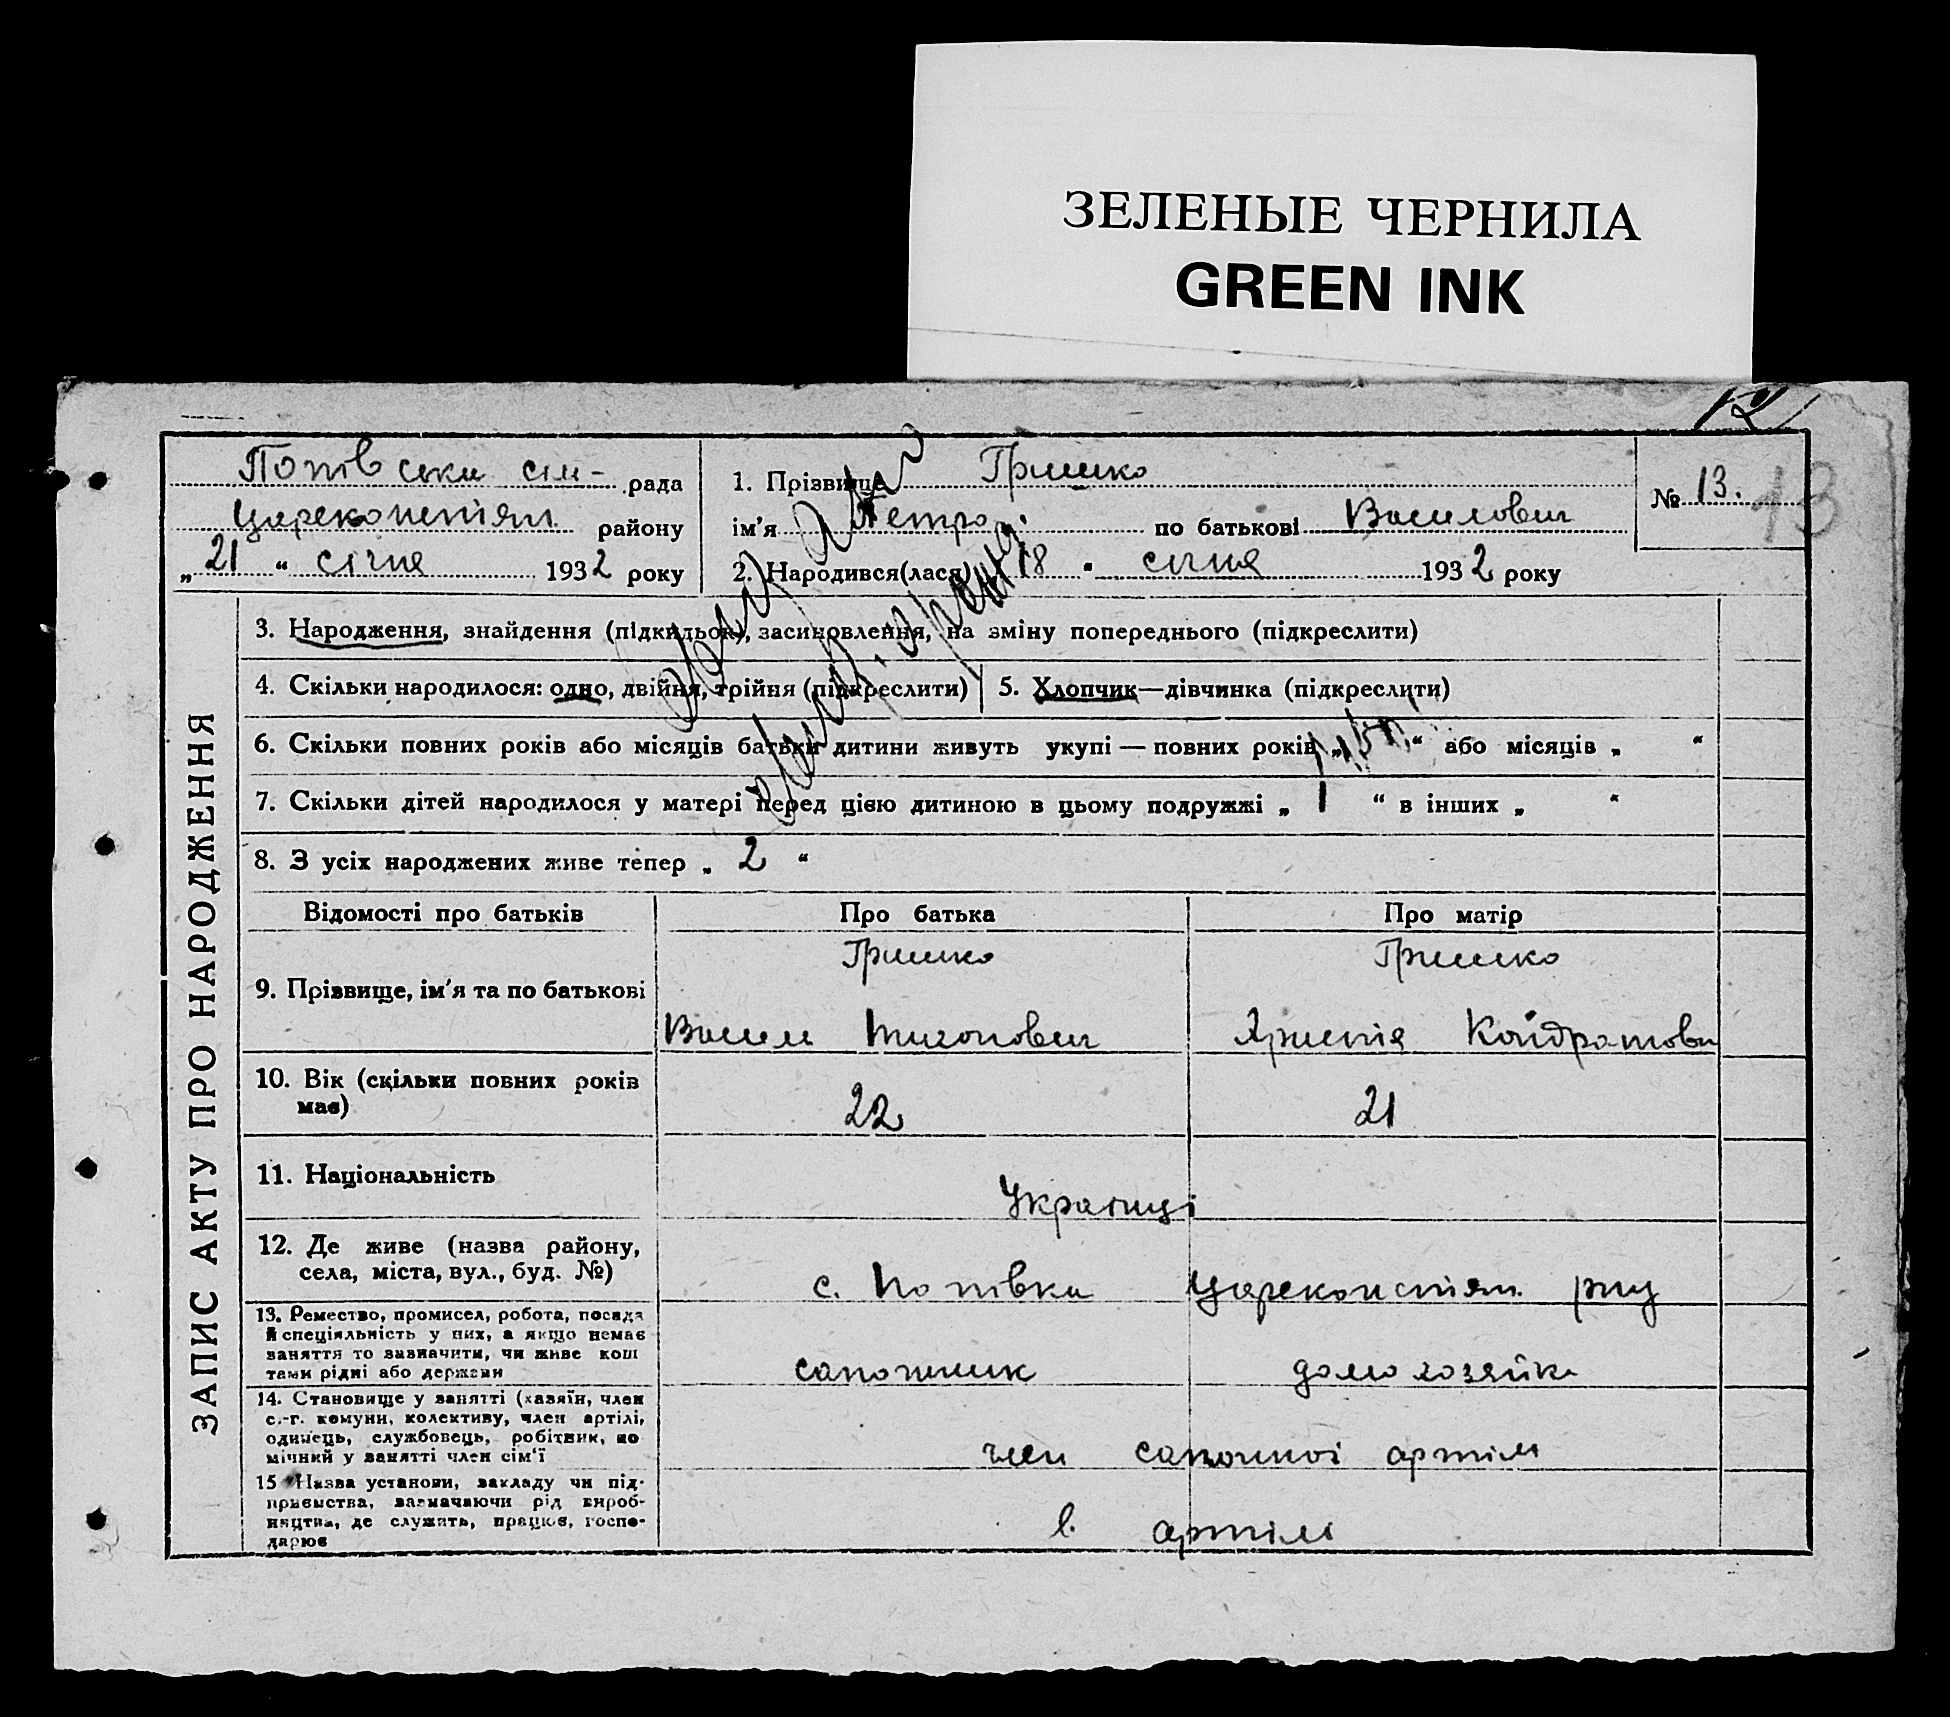 ЗЕЛЕНЫЕ ЧЕРНИЛА
GREEN INK
12
Попівська сіл- рада
Царекопстян району
„21“ січня 1932 року
1. Прізвище Гришко
ім'я Петро по батькові Василович
2. Народився(лася) „18“ січня 1932 року
№ 13.
13
ЗАПИС АКТУ ПРО НАРОДЖЕННЯ
3. Народження, знайдення (підкидьок), засиновлення, на зміну попереднього (підкреслити)
4. Скільки народилося: одно, двійня, трійня (підкреслити)
5. Хлопчик—дівчинка (підкреслити)
6. Скільки повних років або місяців батьки дитини живуть укупі — повних років „ “ або місяців „ “
7. Скільки дітей народилося у матері перед цією дитиною в цьому подружжі „ 1 “ в інших „ “
8. З усіх народжених живе тепер „ 2 “
Відомості про батьків Про батька Про матір
9. Прізвище, ім'я та по батькові
Гришко Гришко
Василь Тихонович Кондратовн
10. Вік (скільки повних років має)
22 21
11. Національність
Українці
12. Де живе (назва району, села, міста, вул., буд. №)
с. Попівка Царекопстян. р-ну
13. Ремество, промисел, робота, посада
й спеціяльність у них, а якщо немає
заняття то зазначити, чи живе кош
тами рідні або держави
сапожник домохозяйка
14. Становище у занятті (хазяїн, член
с.-г. комуни, колективу, член артілі,
одинець, службовець, робітник, по
мічний у занятті член сім'ї
член сапожної артілі
15 Назва установи, закладу чи під-
приємства, зазначаючи рід вироб-
ництва, де служить, працює, госпо-
дарює
в. артілі